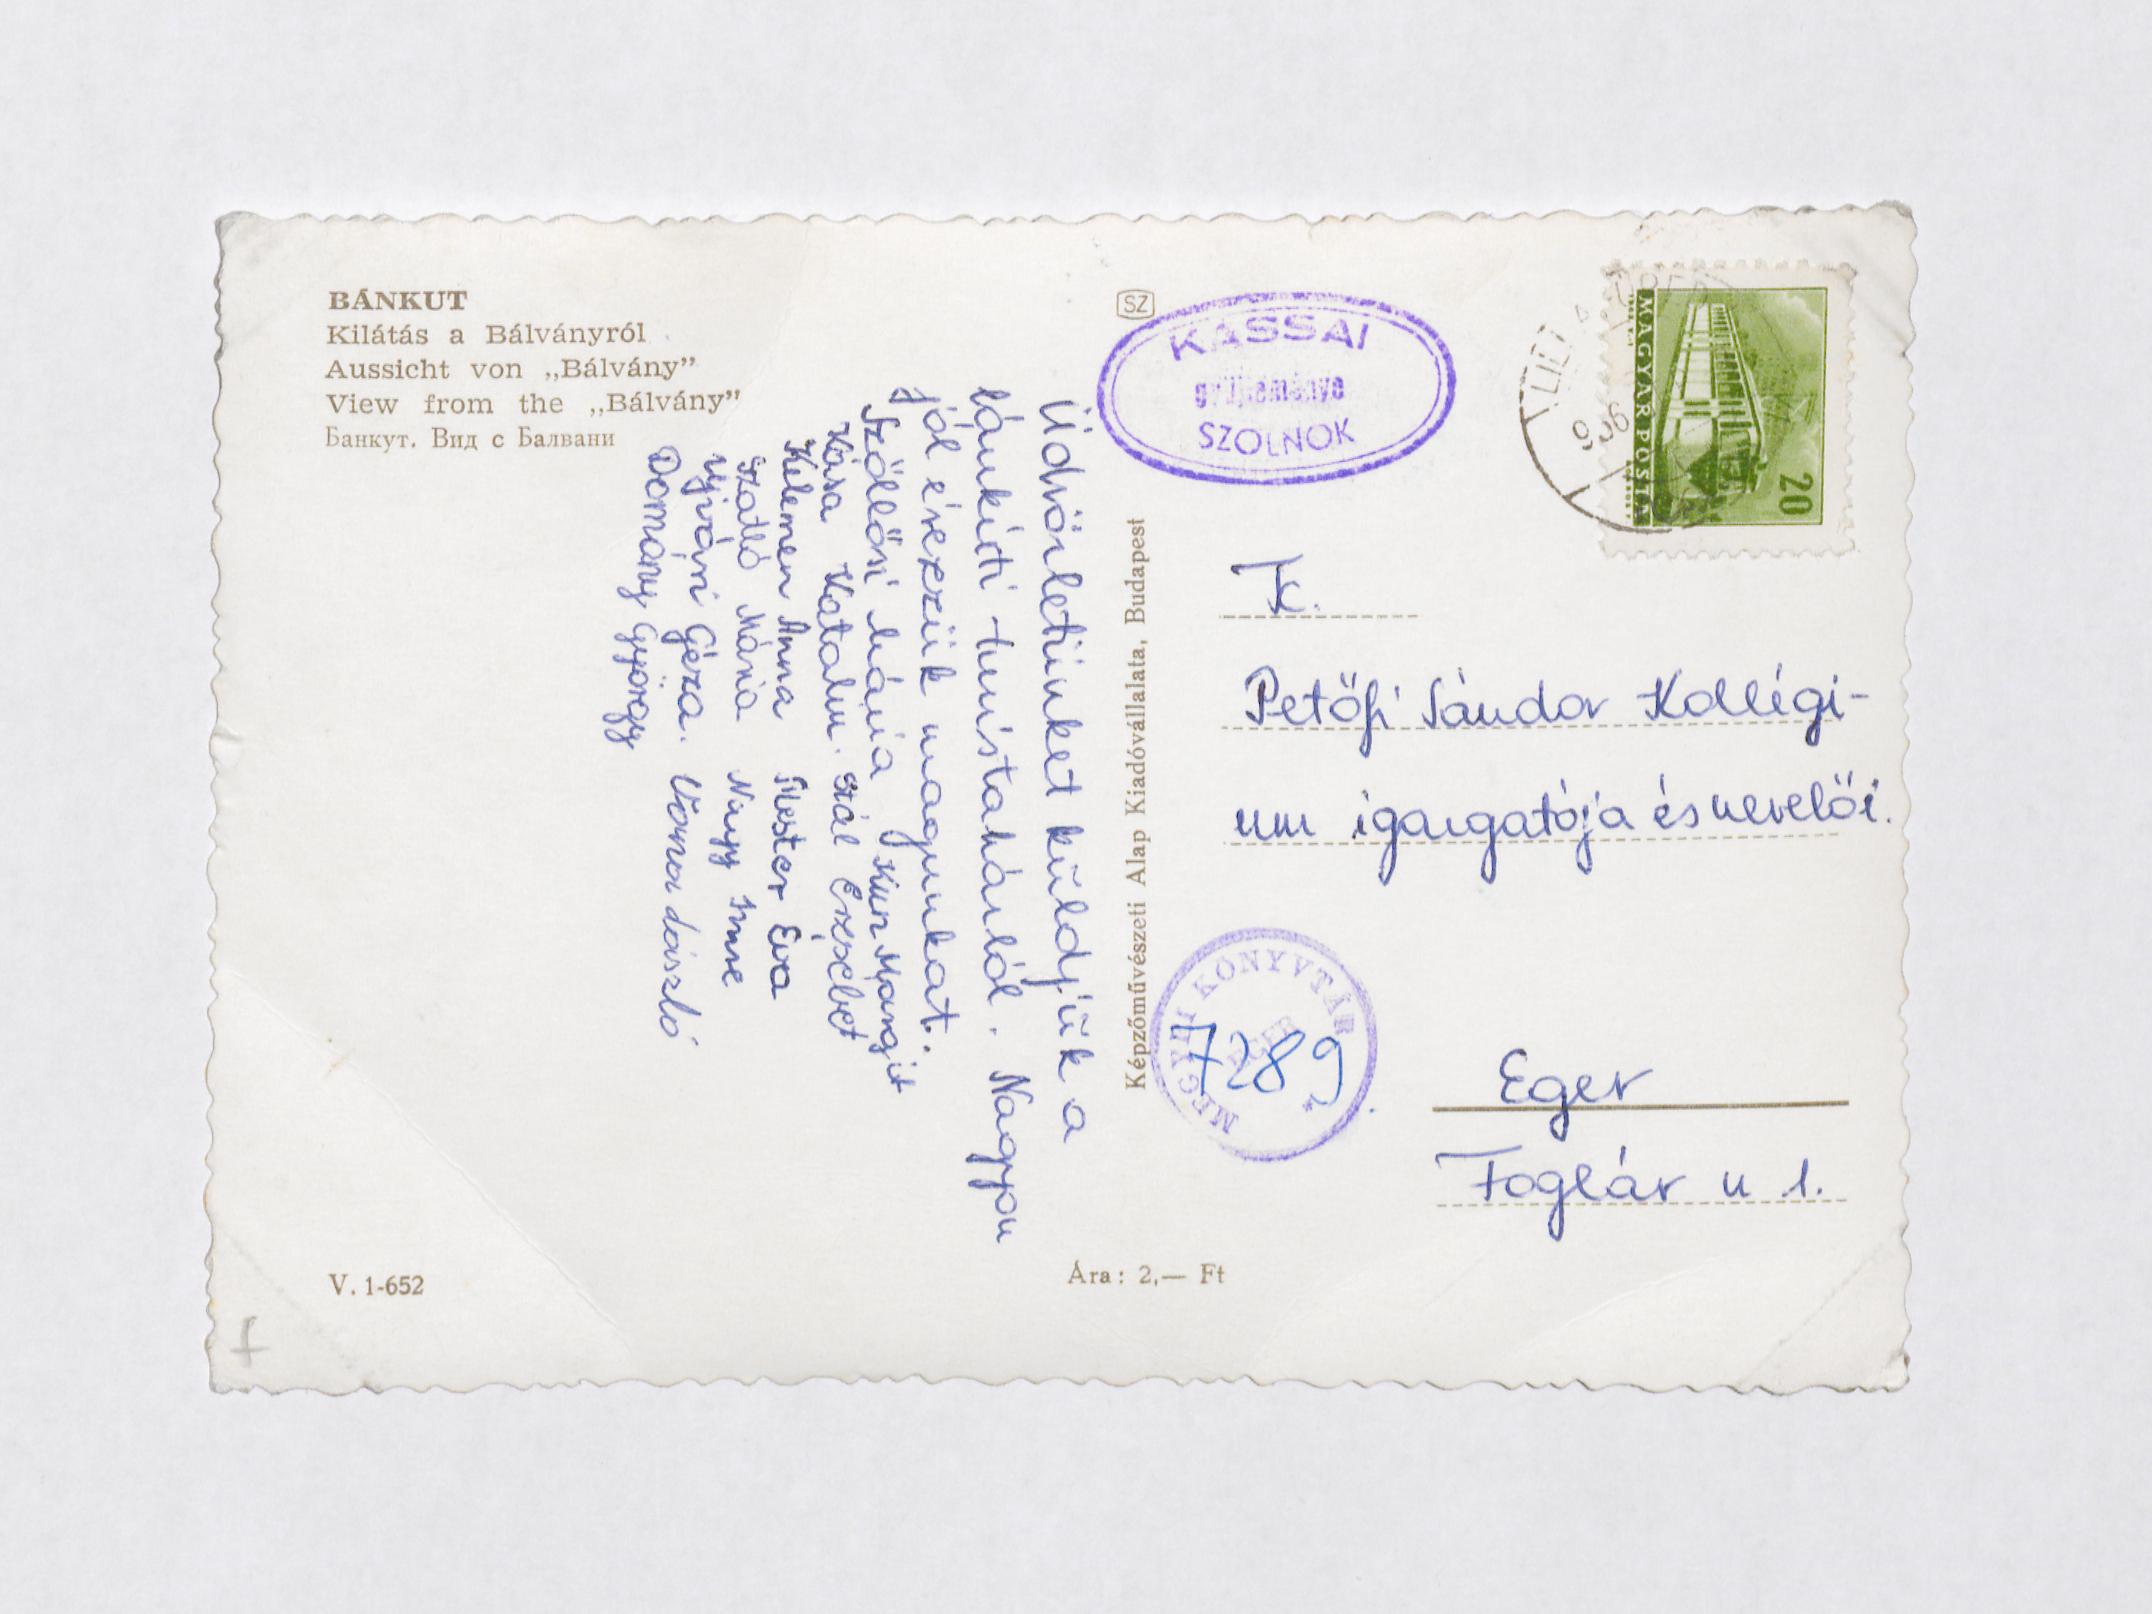 BÁNKUT
Kilátás a Bálványról
Aussicht von „Bálvány”
View from the „Bálvány”
Банкут. Вид с Балвани
Üdvözletünket küldjük a
bánkúti turistaházból. Nagyon
jól érezzük magunkat.
Szőllősi Mária Kun Margit
Kósa Katalin. Stál Erzsébet
Kelemen Anna Mester Éva
Szatló Mária Nagy Imre
Ujvári Géza. Vona László
Domány György
V. 1-652
Ára: 2,— Ft
Képzőművészeti Alap Kiadóvállalata, Budapest
SZ
KASSAI
gyűjteménye
SZOLNOK
MAGYAR POSTA
20
T.
Petőfi Sándor Kollégi-
um igazgatója és nevelői.
MEGYEI KÖNYVTÁR
EGER
7289
Eger
Foglár u 1.